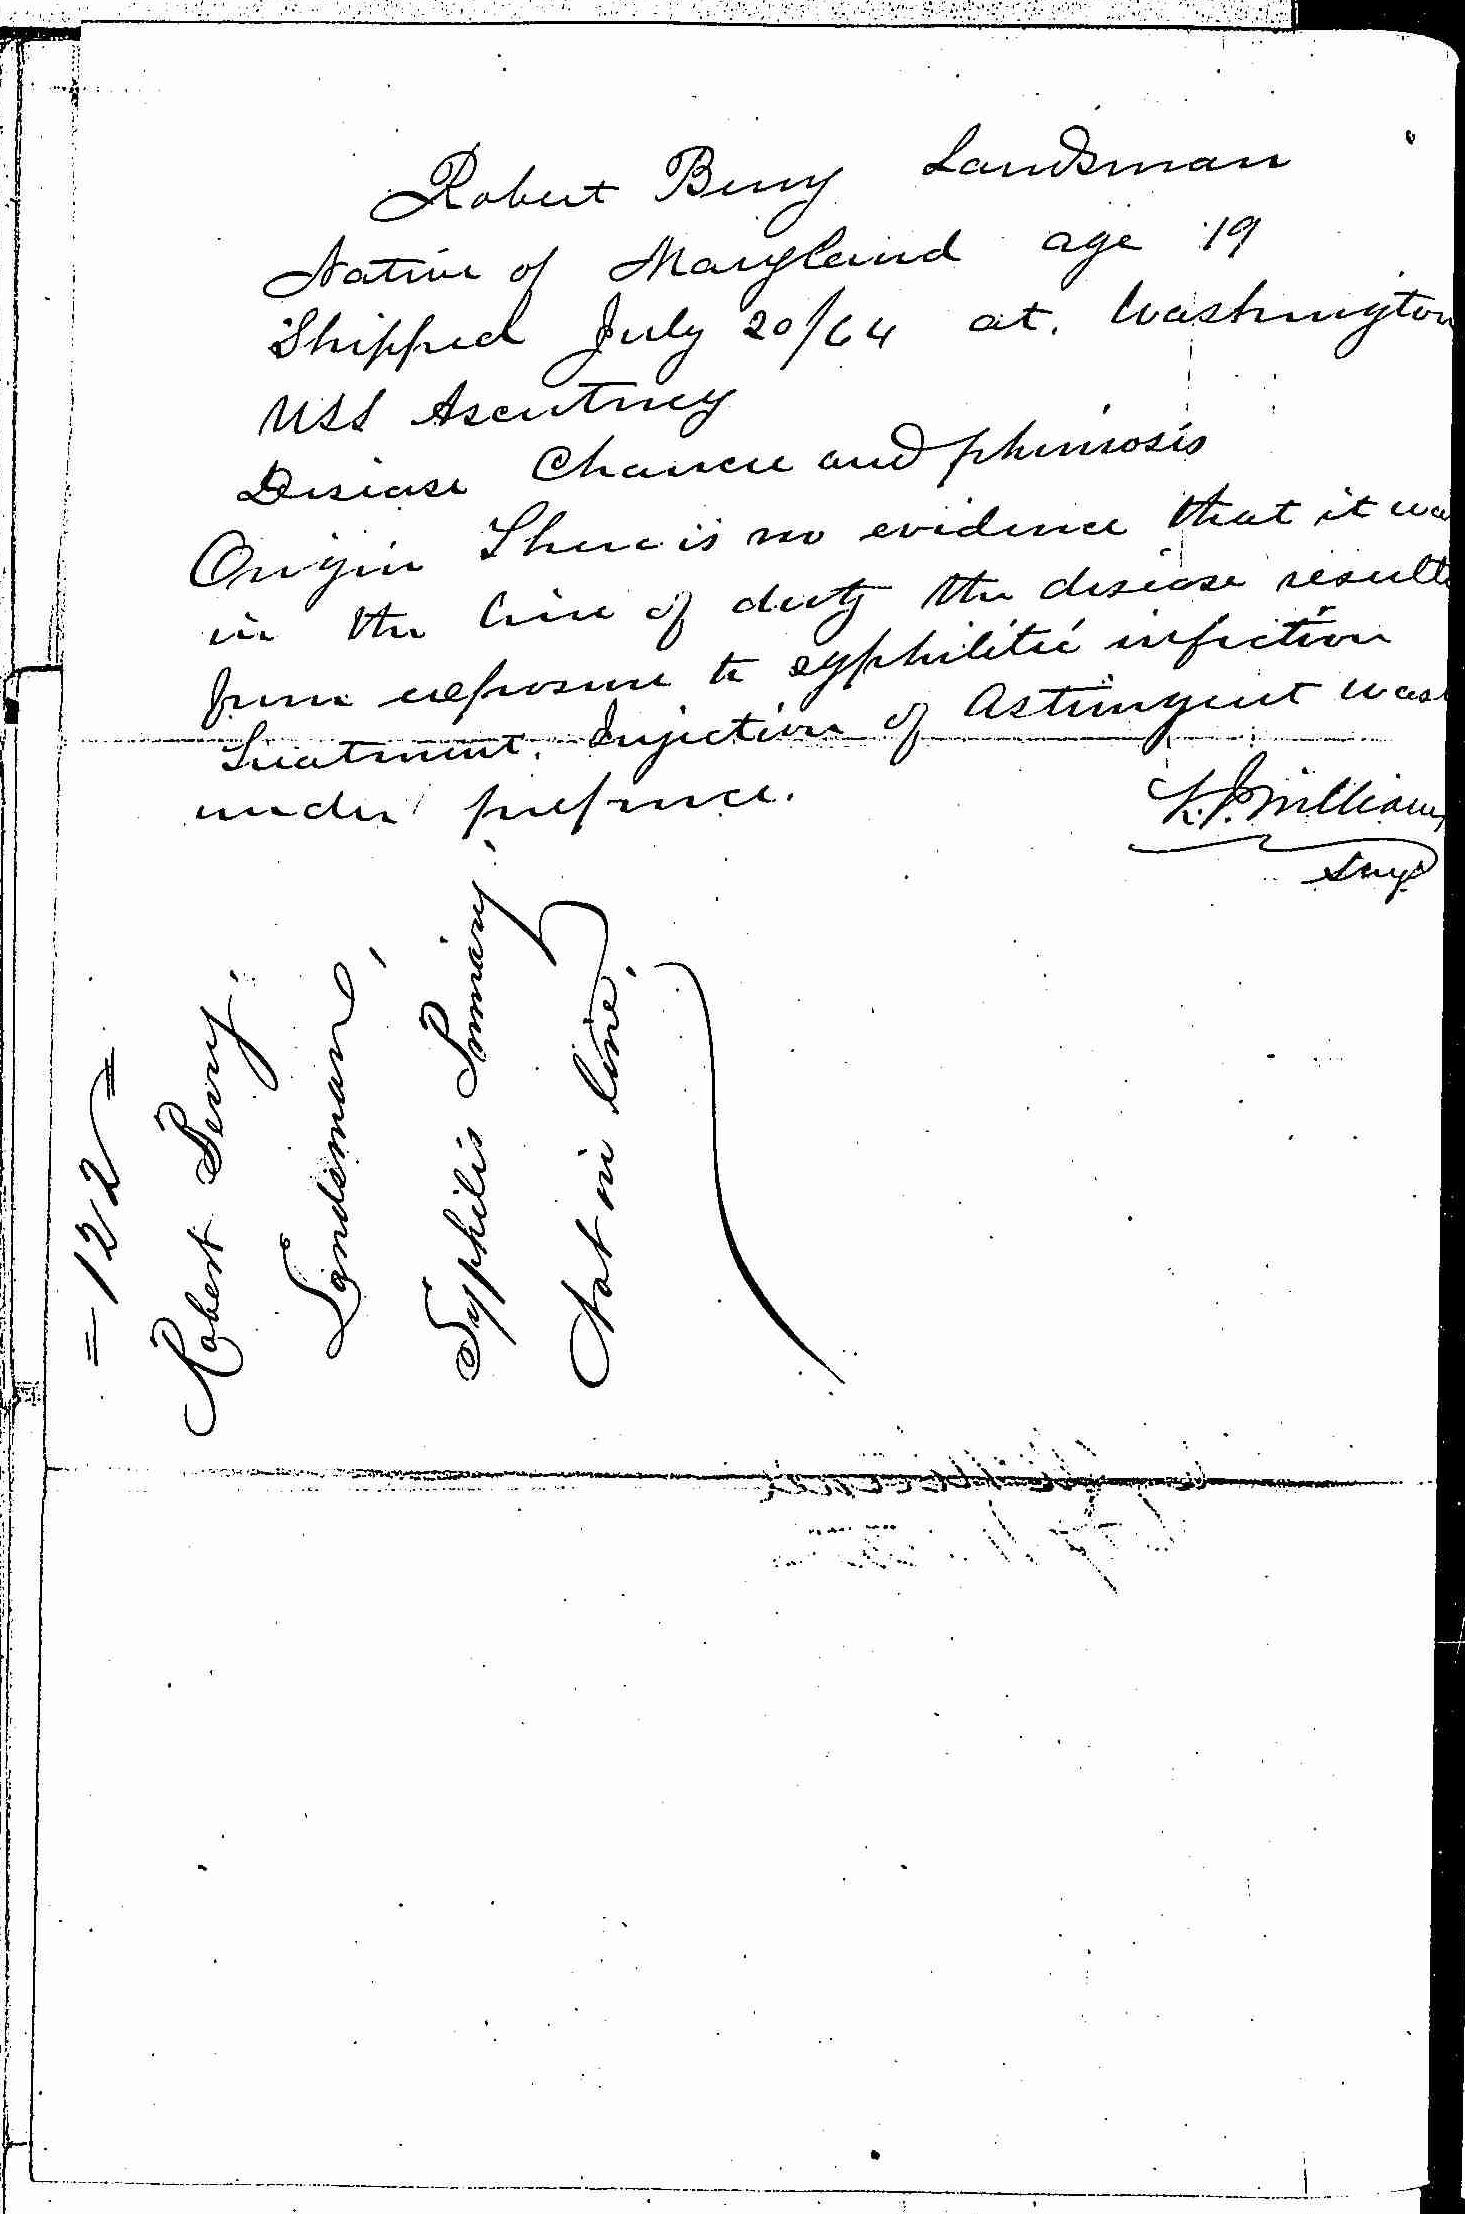 Robert Berry Landsman
Native of Maryland age 19
Shipped July 20/64 at. Washington
USS Ascutney
Disease Chancre and phimosis
Origin There is no evidence that it wa
in the line of duty the disease result
from exposure to syphilitic infection
Treatment. Injection of Astringent was
under prepuce.
Williams
Surg
= 122 =
Robert Berry.
Landsman,
Syphilis Primary.
Not in line.